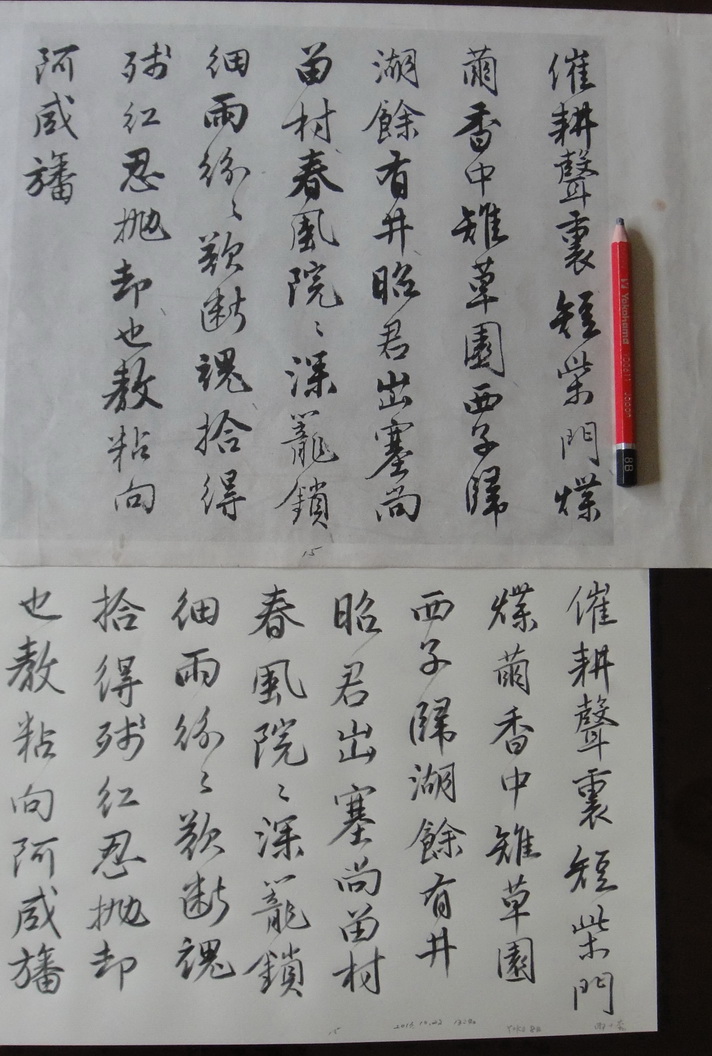 催耕聲裏短柴門煠
繭香中雉草園西子歸
湖餘有井昭君出塞尚
留村春風院〻深籠鎖
細雨紛〻欲斷魂拾得
殘紅忍拋却也教粘向
阿咸旛
15
Yokohama
8B
催耕聲裏短柴門
煠繭香中雉草園
西子歸湖餘有井
昭君出塞尚留村
春風院〻深籠鎖
細雨紛〻欲斷魂
拾得殘紅忍拋却
也教粘向阿咸旛
15